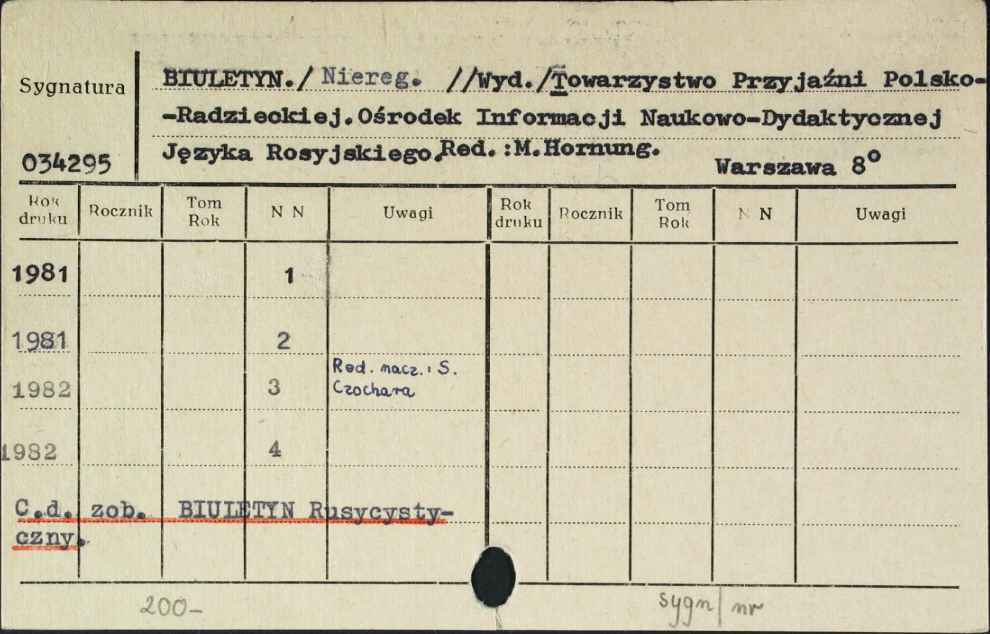 Sygnatura
BIULETYN./ Niereg. //Wyd./Towarzystwo Przyjaźni Polsko-
-Radzieckiej.Ośrodek Informacji Naukowo-Dydaktycznej
Języka Rosyjskiego.Red.:M.Hornung.
034295
Warszawa 8°
Rok druku Rocznik Tom Rok N N Uwagi Rok druku Rocznik Tom Rok N N Uwagi
1981 1
1981 2
Red. nacz.: S.
1982 3 Czochara
1982 4
C.d. zob. BIULETYN Rusycysty-
czny.
200-
sygn/nr